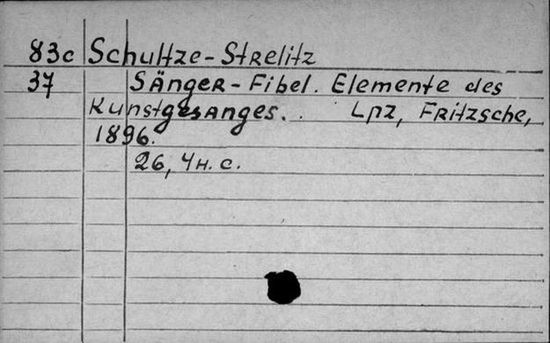 83c Schultze-Strelitz
37 Sänger-Fibel. Elemente des
Kunstgesanges. Lpz, Fritzsche,
1896.
26, 4н. с.